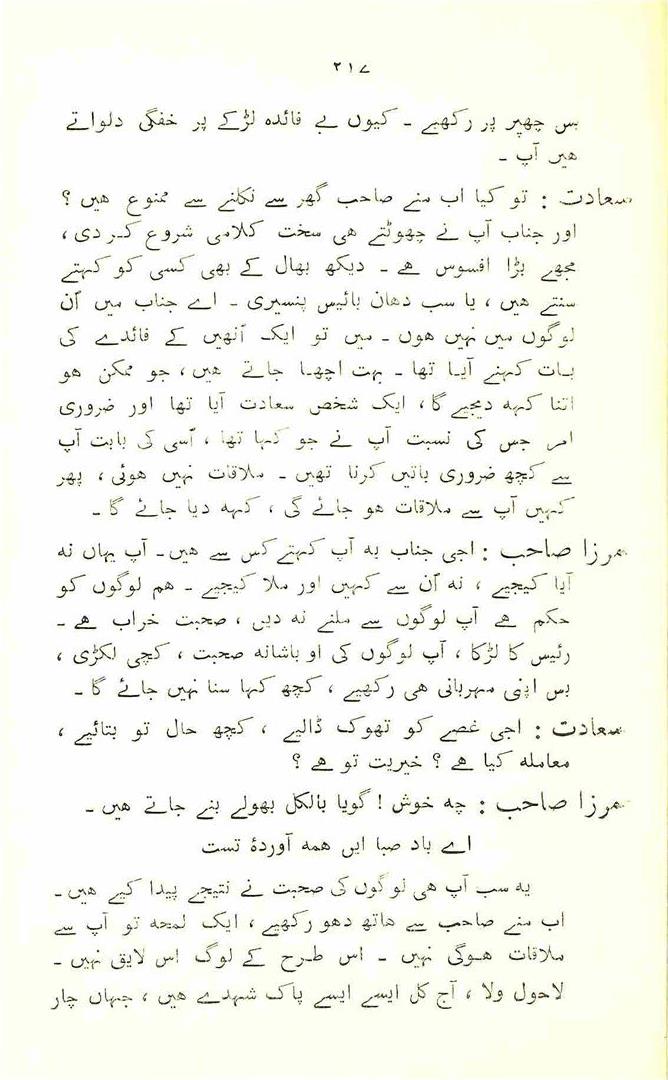 ۲۱۷
بس چھپر پر رکھیے ۔ کیوں بے فائدہ لڑکے پر خفگی دلواتے
ھیں آپ ۔
سعادت : تو کیا اب منے صاحب گھر سے نکلنے سے ممنوع ھیں ؟
اور جناب آپ نے چھوٹتے ھی سخت کلامی شروع کر دی ،
مجھے بڑا افسوس ھے ۔ دیکھ بھال کے بھی کسی کو کہتے
سنتے ھیں ، یا سب دھان بائیس پنسیری ۔ اے جناب میں اُن
لوگوں میں نہیں ھوں ۔ میں تو ایک اُنھیں کے فائدے کی
بات کہنے آیا تھا ۔ بہت اچھا جاتے ھیں ، جو ممکن ھو
اتنا کہہ دیجیے گا ، ایک شخص سعادت آیا تھا اور ضروری
امر جس کی نسبت آپ نے جو کہا تھا ، اُسی کی بابت آپ
سے کچھ ضروری باتیں کرنا تھیں ۔ ملاقات نہیں ھوئی ، پھر
کہیں آپ سے ملاقات ھو جائے گی ، کہہ دیا جائے گا ۔
مرزا صاحب : اجی جناب یہ آپ کہتے کس سے ھیں ۔ آپ یہاں نہ
آیا کیجیے ، نہ اُن سے کہیں اور ملا کیجیے ۔ ھم لوگوں کو
حکم ھے آپ لوگوں سے ملنے نہ دیں ، صحبت خراب ھے ۔
رئیس کا لڑکا ، آپ لوگوں کی اوباشانہ صحبت ، کچی لکڑی ،
بس اپنی مہربانی ھی رکھیے ، کچھ کہا سنا نہیں جائے گا ۔
سعادت : اجی غصے کو تھوک ڈالیے ، کچھ حال تو بتائیے ،
معاملہ کیا ھے ؟ خیریت تو ھے ؟
مرزا صاحب : چہ خوش ! گویا بالکل بھولے بنے جاتے ھیں ۔
اے باد صبا ایں ھمہ آوردۂ تست
یہ سب آپ ھی لوگوں کی صحبت نے نتیجے پیدا کیے ھیں ۔
اب منے صاحب سے ھاتھ دھو رکھیے ، ایک لمحہ تو آپ سے
ملاقات ھوگی نہیں ۔ اس طرح کے لوگ اس لایق نہیں ۔
لاحول ولا ، آج کل ایسے ایسے پاک شہدے ھیں ، جہاں چار